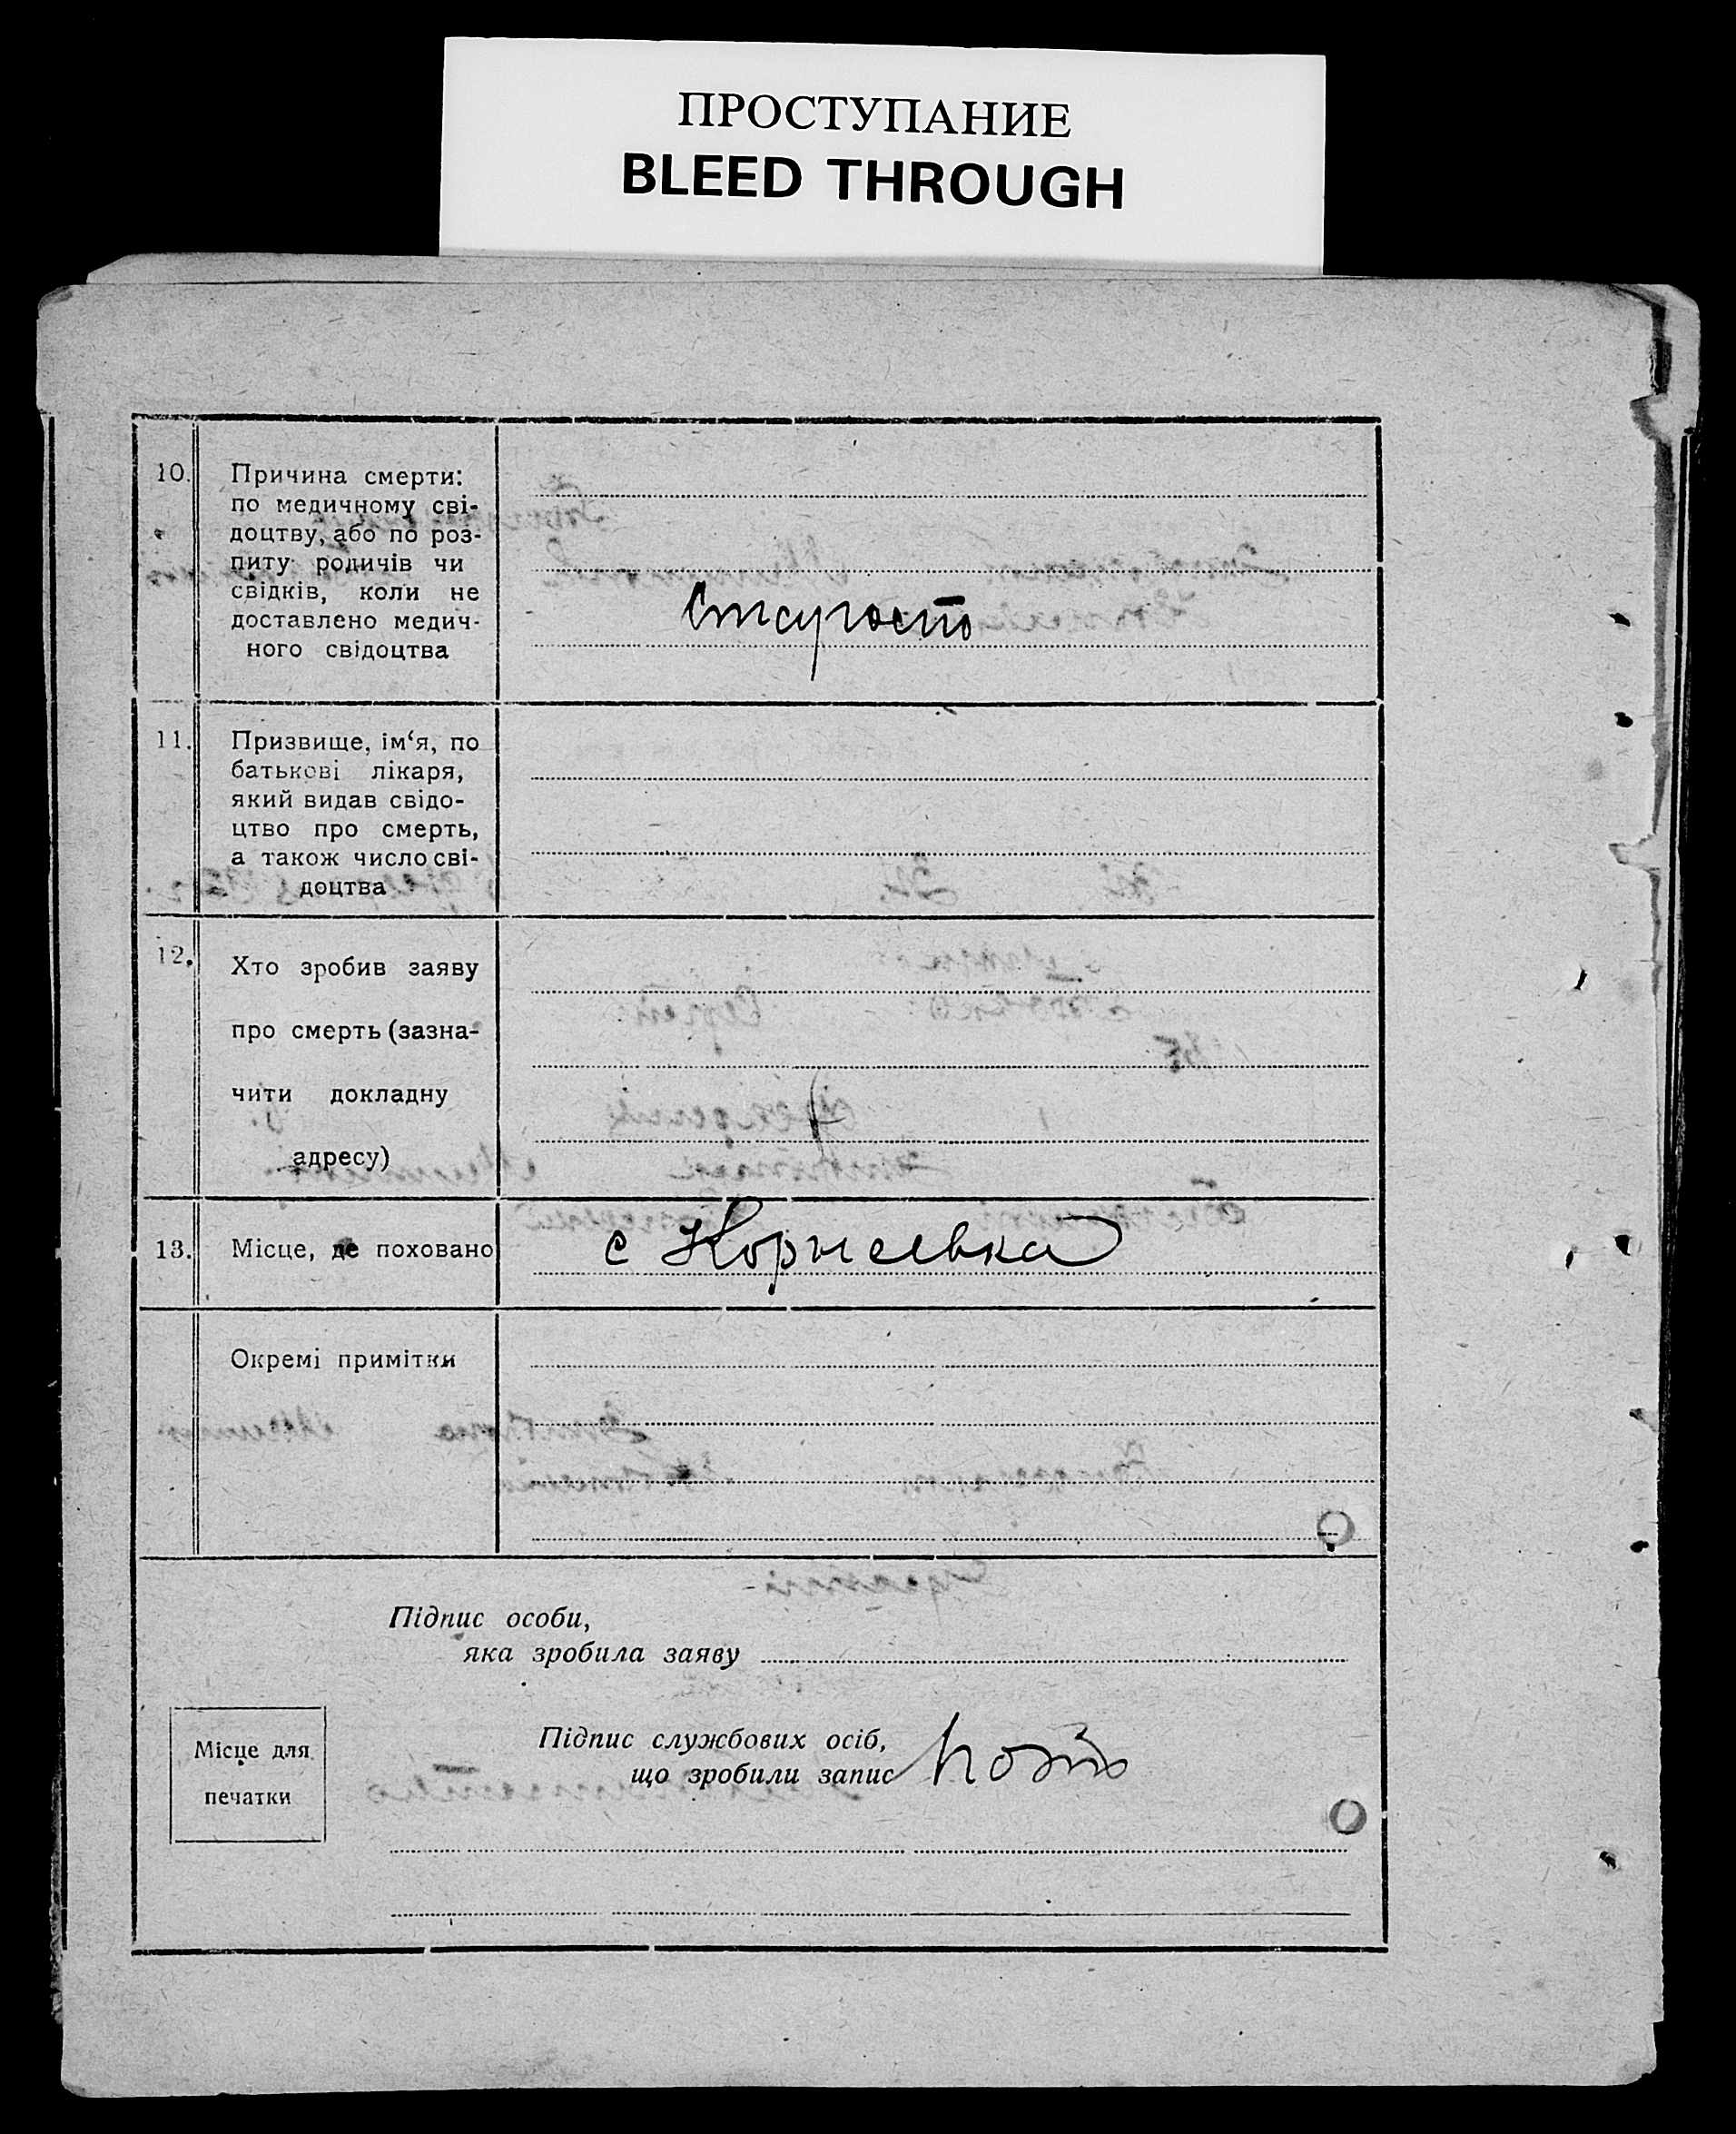 ПРОСТУПАНИЕ
BLEED THROUGH
10.
Причина смерти:
по медичному сві-
доцтву, або по роз-
питу родичів чи
свідків, коли не
доставлено медич-
ного свідоцтва
Старость
11.
Призвище, ім‘я, по
батькові лікаря,
який видав свідо-
цтво про смерть,
а також число сві-
доцтва
12.
Хто зробив заяву
про смерть (зазна-
чити докладну
адресу)
13.
Місце, де поховано
с Корнеевка
Окремі примітки
Підпис особи,
яка зробила заяву
Підпис службових осіб,
що зробили запис
Місце для
печатки